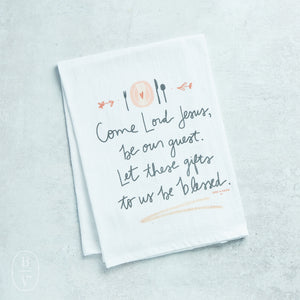 Come Lord Jesus,
be our guest.
Let these gifts
to us be blessed.